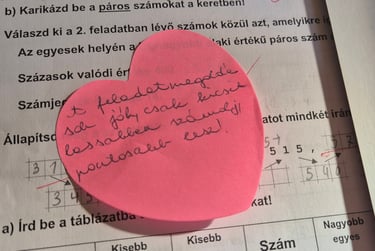 b) Karikázd be a páros számokat a keretben!
Válaszd ki a 2. feladatban lévő számok közül azt, amelyikre i
Az egyesek helyén a laki értékű páros szám
Százasok valódi ér
Számje
A feladatmegoldá
sok jók, csak kicsit
lassabban számolj,
pontosabb lesz!
Állapítsd atot mindkét irán
3 1 5 1 5 ,
3 4 5 4
a) Írd be a táblázatba kat!
Kisebb Kisebb Szám Nagyobb
egyes